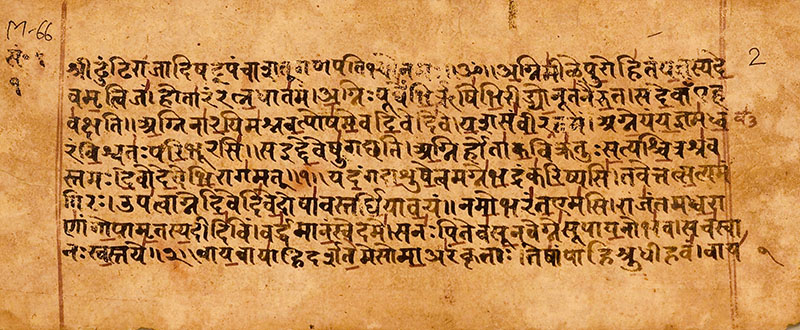 M-66
सं॰ १
१
2
श्रीढुंढिराजादिषट्पंचाशत्गणपतिभ्योनमः॥ॐ॥अग्निमीळेपुरोहितंयज्ञस्यदे
वमृत्विजं।होतारंरत्नधातमं।अग्निःपूर्वेभिर्ऋषिभिरीड्योनूतनैरुत।सदेवाँएह
वक्षति॥अग्निनारयिमश्नवत्पोषमेवदिवेदिवे।यशसंवीरवत्तमं।अग्नेयंयज्ञमध्व
रंविश्वतःपरिभूरसि।सइद्देवेषुगच्छति।अग्निर्होताकविक्रतुःसत्यश्चित्रश्रव
स्तमः।देवोदेवेभिरागमत्॥१॥यदंगदाशुषेत्वमग्नेभद्रंकरिष्यसि।तवेत्तत्सत्यमं
गिरः।उपत्वाग्नेदिवेदिवेदोषावस्तर्धियावयं॥नमोभरंतएमसि।राजंतमध्वरा
णांगोपामृतस्यदीदिविं।वर्द्धमानंस्वेदमे।सनःपितेवसूनवेग्नेसूपायनोभव।सचस्वा
नःस्वस्तये॥२॥वायवायाहिदर्शतेमेसोमाअरंकृताः।तेषांपाहिश्रुधीहवं।वाय